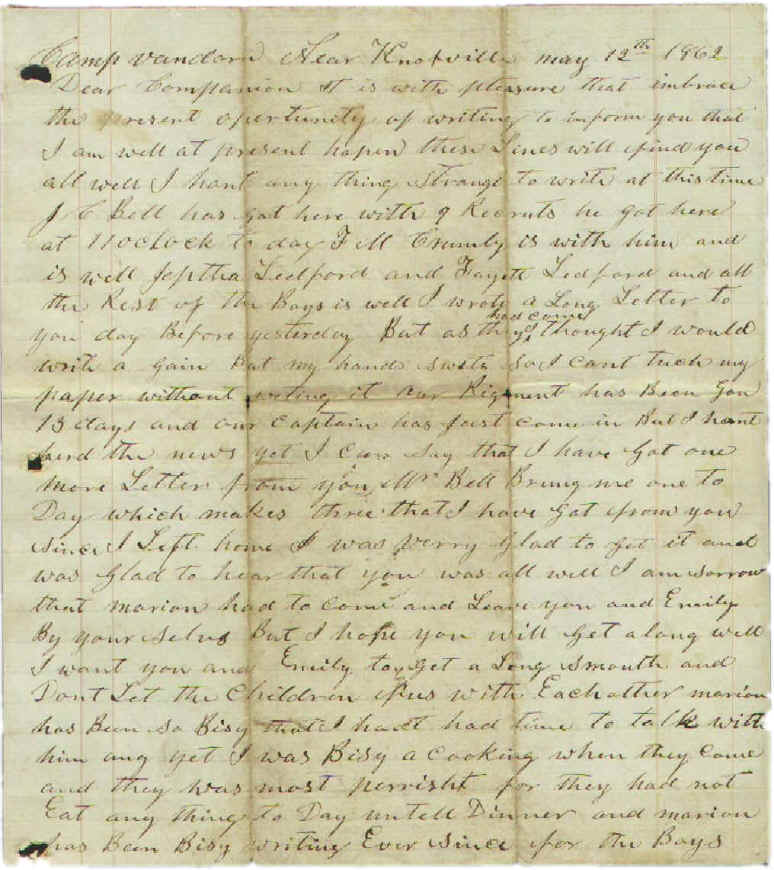 Camp vandorn Near Knoxville may 12th 1862
Dear Companion It is with pleasure that imbrace
the present opertunity of writing to inform you that
I am well at present hopen these Lines will find you
all well I hant any thing Strange to write at this time
J C Bell has got here with 9 Recruts he got here
at 11 oclock to day F M Crumly is with him and
is well Jeptha Ledford and Fayett Ledford and all
the Rest of the Boys is well I wrote a Long Letter to
you day Before yesterday But as they had come I thought I would
write a gain But my hands swets so I cant tuch my
paper without weting it our Rigment has Been gon
13 days and our Captain has just come in But I hant
herd the news yet I can say that I have Got one
more Letter from you Mr Bell Brung me one to
Day which makes three that I have Got from you
since I Left home I was verry Glad to get it and
was Glad to hear that you was all well I am sorrow
that marion had to come and Leave you and Emily
By your selvs But I hope you will Get along well
I want you and Emily to get a Long smouth and
Dont Let the Children fus with Each other marion
has Been so Bisy that I hant had time to talk with
him any yet I was Bisy a cooking when they come
and they was most perrisht for they had not
Eat any thing to Day untell Dinner and marion
has Been Bisy writing Ever since for the Boys